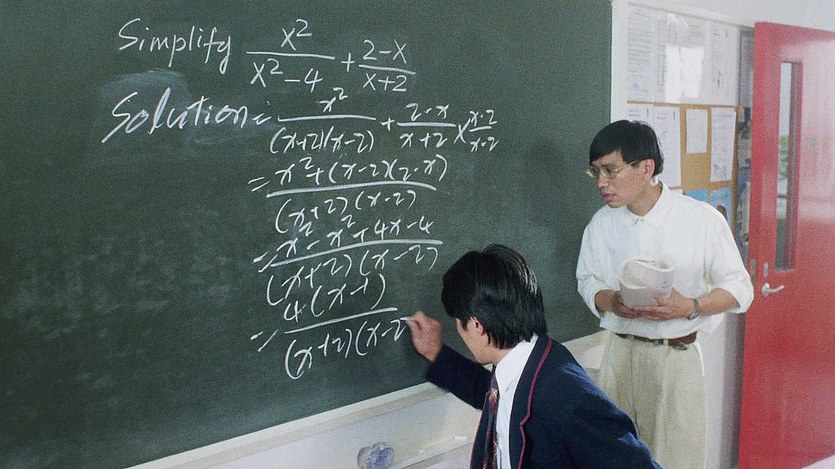 Simplify x²/(x²-4) + (2-x)/(x+2)
Solution: x²/((x+2)(x-2)) + (2-x)/(x+2) × (x-2)/(x-2)
= (x²+(x-2)(2-x))/((x+2)(x-2))
= (x²-x²+4x-4)/((x+2)(x-2))
= 4(x-1)/((x+2)(x-2